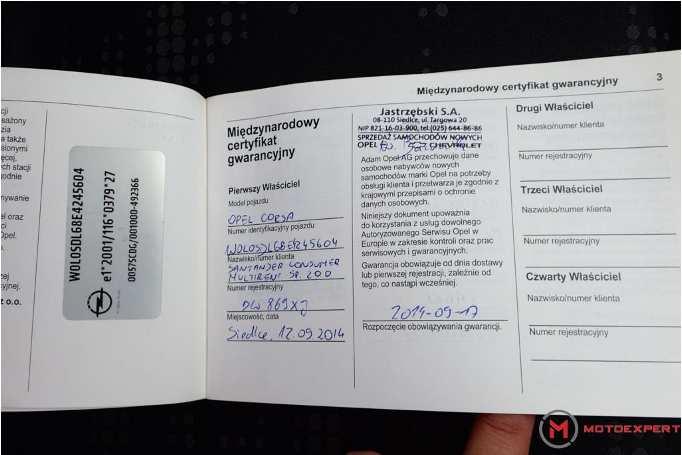 Międzynarodowy certyfikat gwarancyjny 3
W0L0SDL68E4245604
e1*2001/116*0379*27
0057SC06/0010000-492366
Międzynarodowy
certyfikat
gwarancyjny
Pierwszy Właściciel
Model pojazdu
OPEL CORSA
Numer identyfikacyjny pojazdu
W0L0SDL68E4245604
Nazwisko/numer klienta
SANTANDER CONSUMER
MULTIRENT SP. Z O O
Numer rejestracyjny
DW 869XJ
Miejscowość, data
Siedlce, 17.09.2014
Jastrzębski S.A.
08-110 Siedlce, ul. Targowa 20
NIP 821-16-03-900, tel.(025) 644-86-86
SPRZEDAŻ SAMOCHODÓW NOWYCH
OPEL CHEVROLET
Adam Opel AG przechowuje dane
osobowe nabywców nowych
samochodów marki Opel na potrzeby
obsługi klienta i przetwarza je zgodnie z
krajowymi przepisami o ochronie
danych osobowych.
Niniejszy dokument upoważnia
do korzystania z usług dowolnego
Autoryzowanego Serwisu Opel w
Europie w zakresie kontroli oraz prac
serwisowych i gwarancyjnych.
Gwarancja obowiązuje od dnia dostawy
lub pierwszej rejestracji, zależnie od
tego, co nastąpi wcześniej.
2014-09-17
Rozpoczęcie obowiązywania gwarancji.
Drugi Właściciel
Nazwisko/numer klienta
Numer rejestracyjny
Trzeci Właściciel
Nazwisko/numer klienta
Numer rejestracyjny
Czwarty Właściciel
Nazwisko/numer klienta
Numer rejestracyjny
MOTOEXPERT